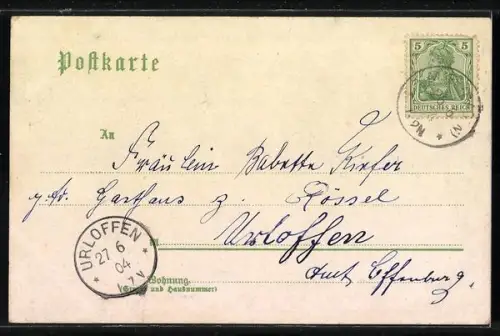 Postkarte
5 5
DEUTSCHES REICH
An
Fräulein Babette Kiefer
Gasthaus z. Rössel
in Urloffen
Amt Offenburg.
URLOFFEN
27 6
04
7 V
Wohnung
(Straße und Hausnummer)